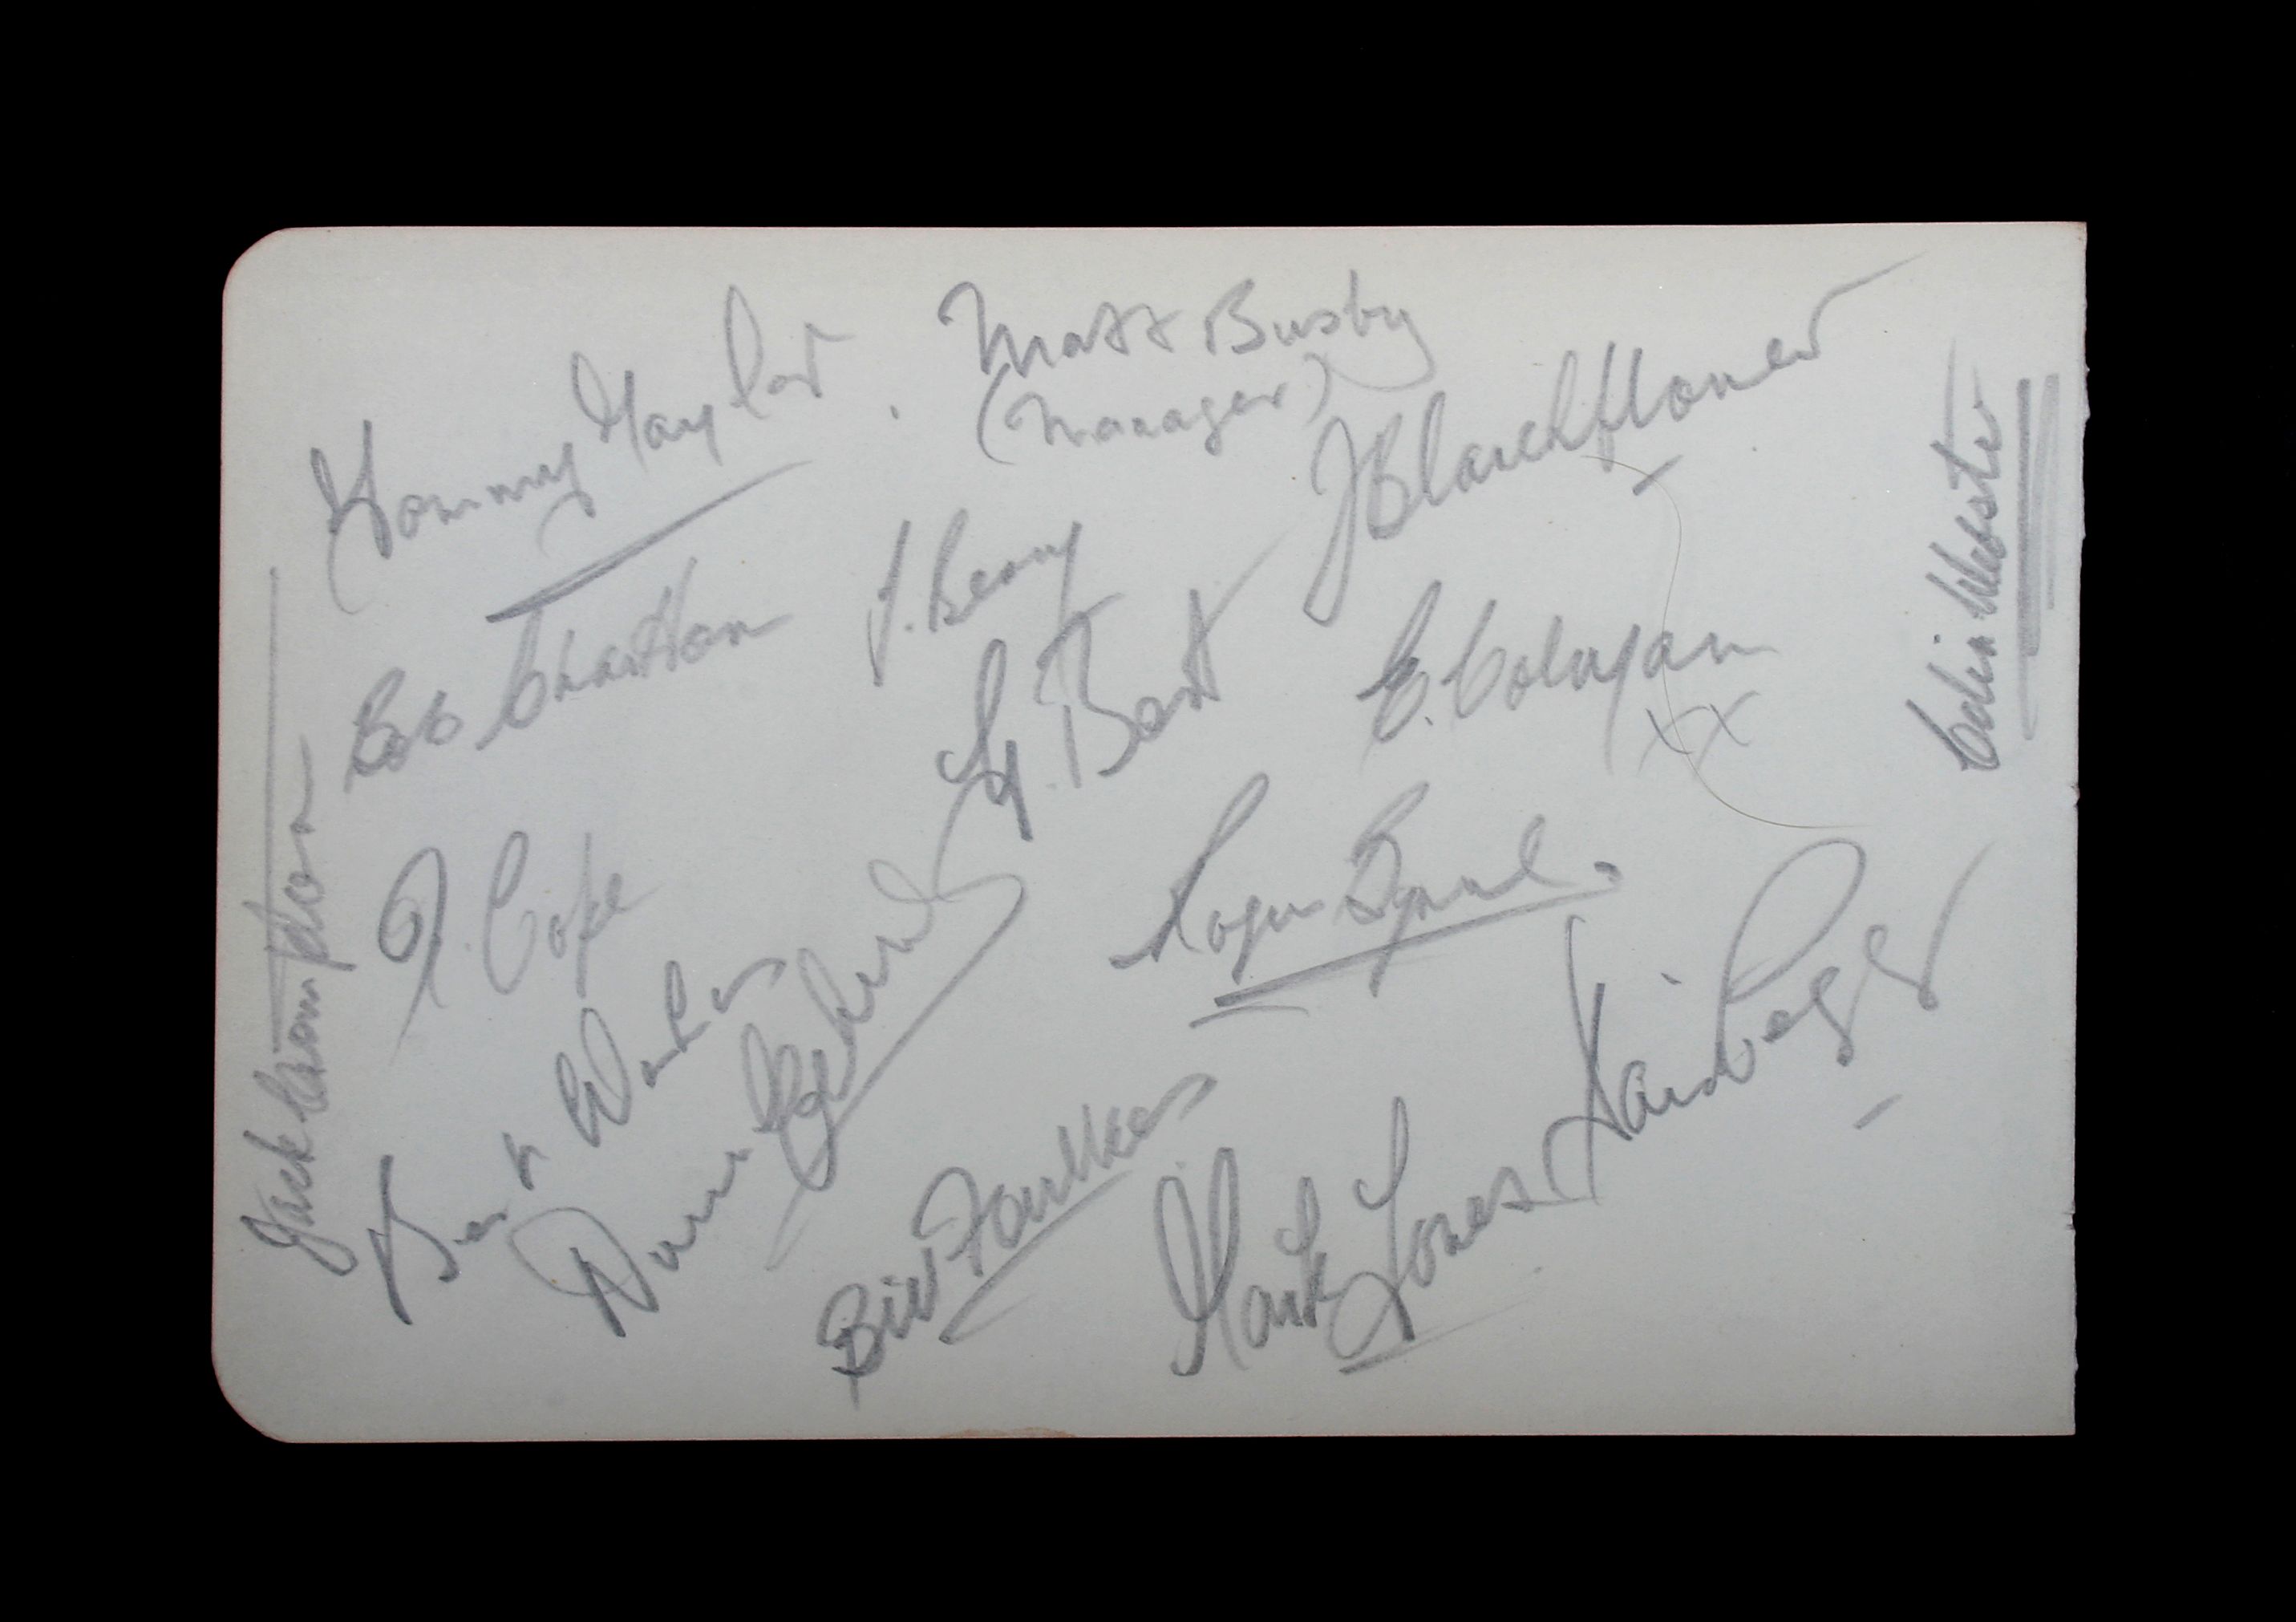 Tommy Taylor.
Matt Busby
(Manager)
J Blanchflower
Colin Webster
Bob Charlton
J. Berry
G. Bent
E. Colman
xx
R. Cope
Roger Byrne.
Jack Crompton
Dennis Viollet
Duncan Edwards
Bill Foulkes
Mark Jones
David Pegg